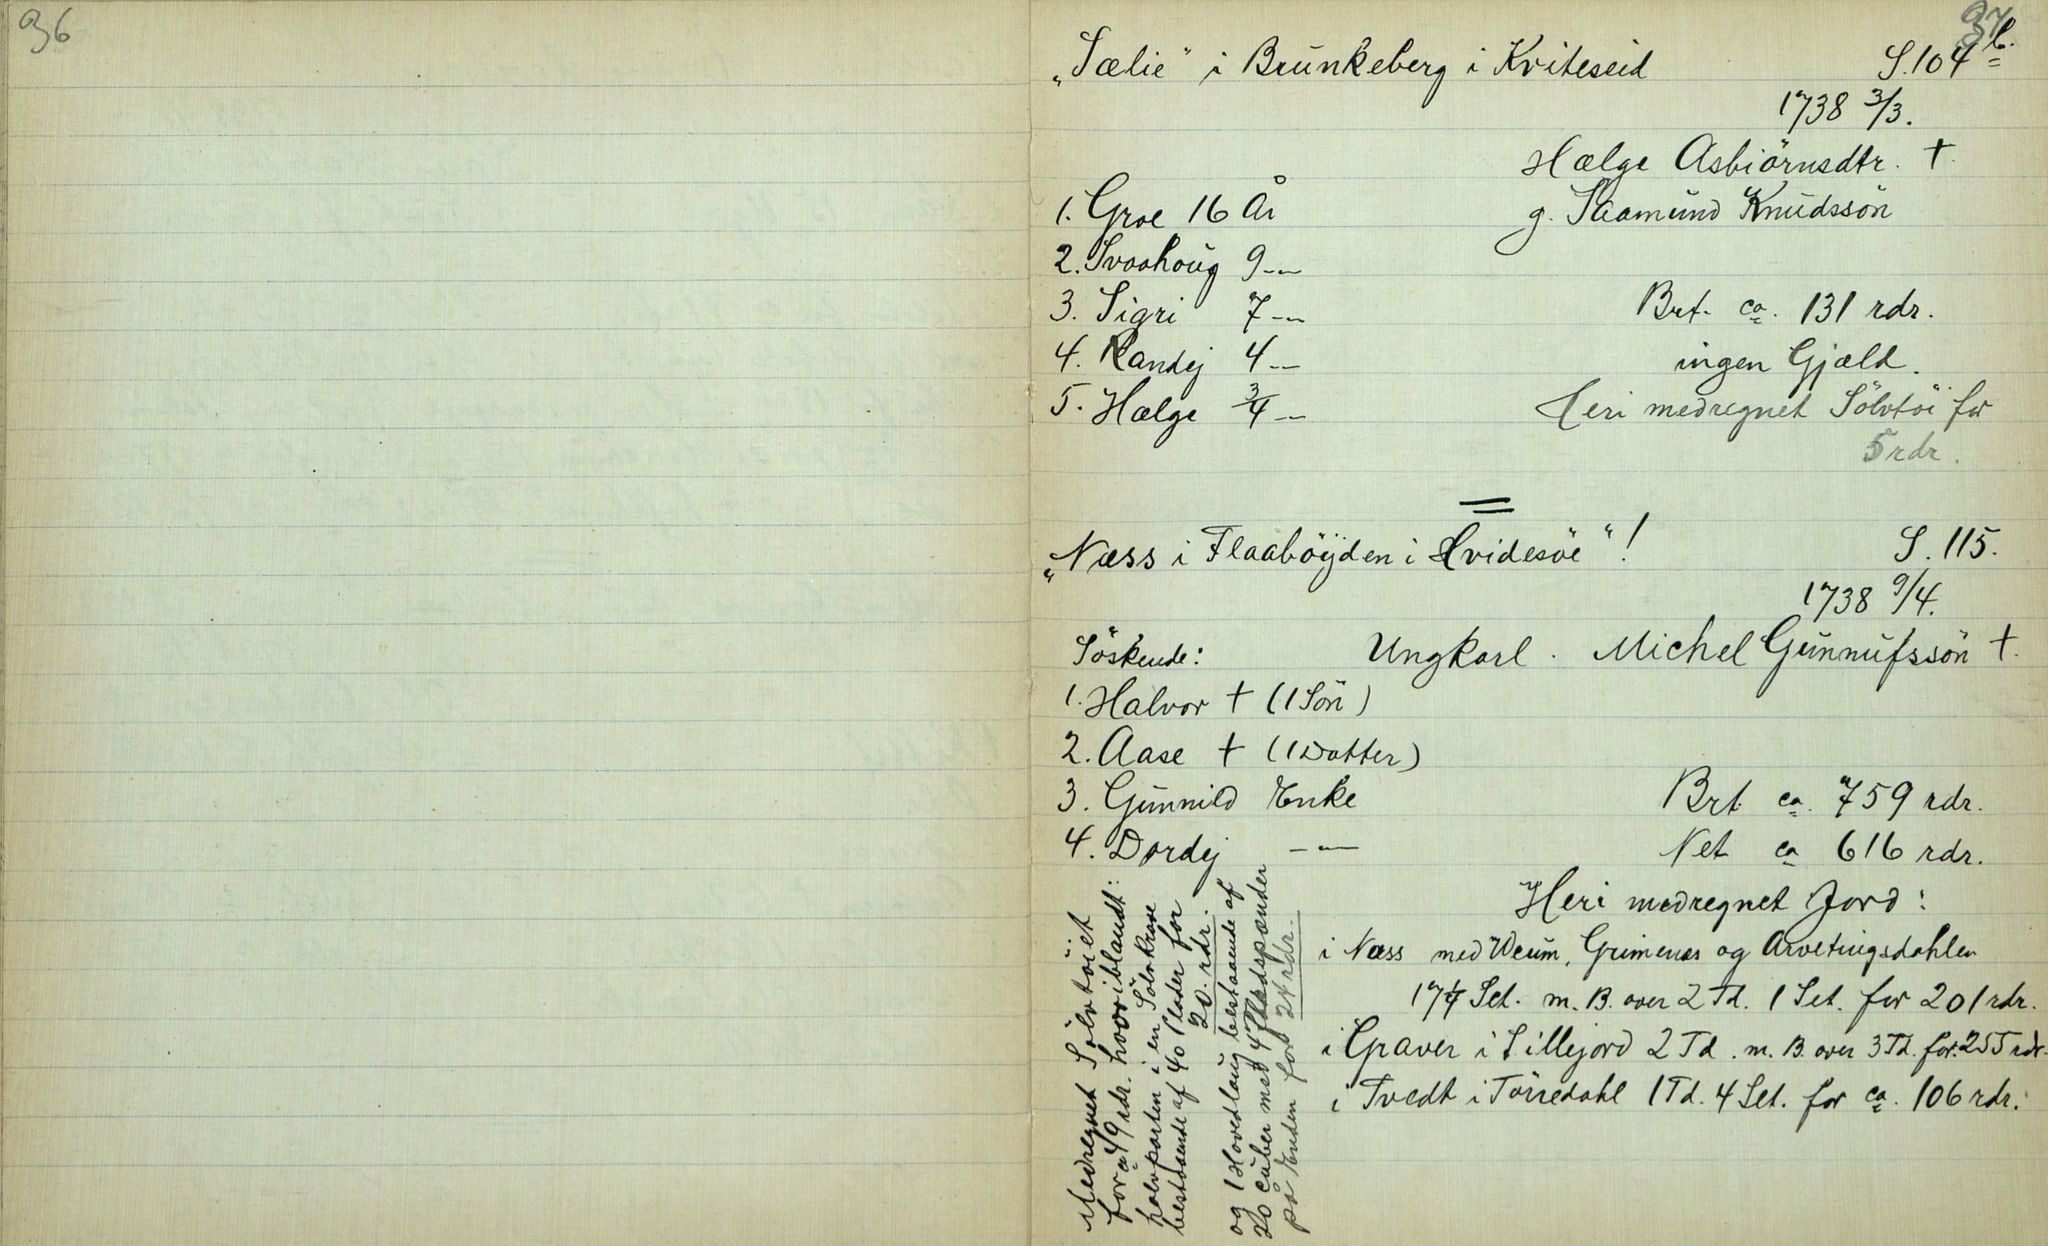 36
37
„Sælie" i Brunkeberg i Kviteseid S. 104 b.
1738 3/3.
Hælge Asbiörnsdtr. †.
1. Groe 16 År g. Saamund Knudssön
2. Svaahoug 9 -„-
3. Sigri 7 -„- Brt. ca. 131 rdr.
4. Randej 4 -„- ingen Gjæld.
5. Hælge 3/4 -„- Heri medregnet Sölvtöi for
5 rdr.
„Næss i Flaaböijden i Hvidesöe"! S. 115.
1738 9/4.
Söskende: Ungkarl. Michel Gunnufssön †.
1. Halvor † (1 Sön)
2. Aase † (1 Datter)
3. Gunnild Enke Brt. ca. 759 rdr.
4. Dordej -„- Net ca 616 rdr.
Heri medregnet Jord:
i Næss med Weum, Grimenæs og Arvetingsdahlen
17 1/4 Set. m. B. over 2 Td. 1 Set. for 201 rdr.
i Graver i Sillejord 2 Td. m. B. over 3 Td. for 255 rdr.
i Tvedt i Törredahl 1 Td. 4 Set. for ca. 106 rdr.
Medregnet Sölvtöiet
for ca 49 rdr. hvoriblandt:
halvparten i en Sölvkrave
bestaaende af 40 Plader for
20 rdr.
og 1 Hovedlaug bestaaende af
20 Cuber med 4 spænder
på Enden for 24 rdr.